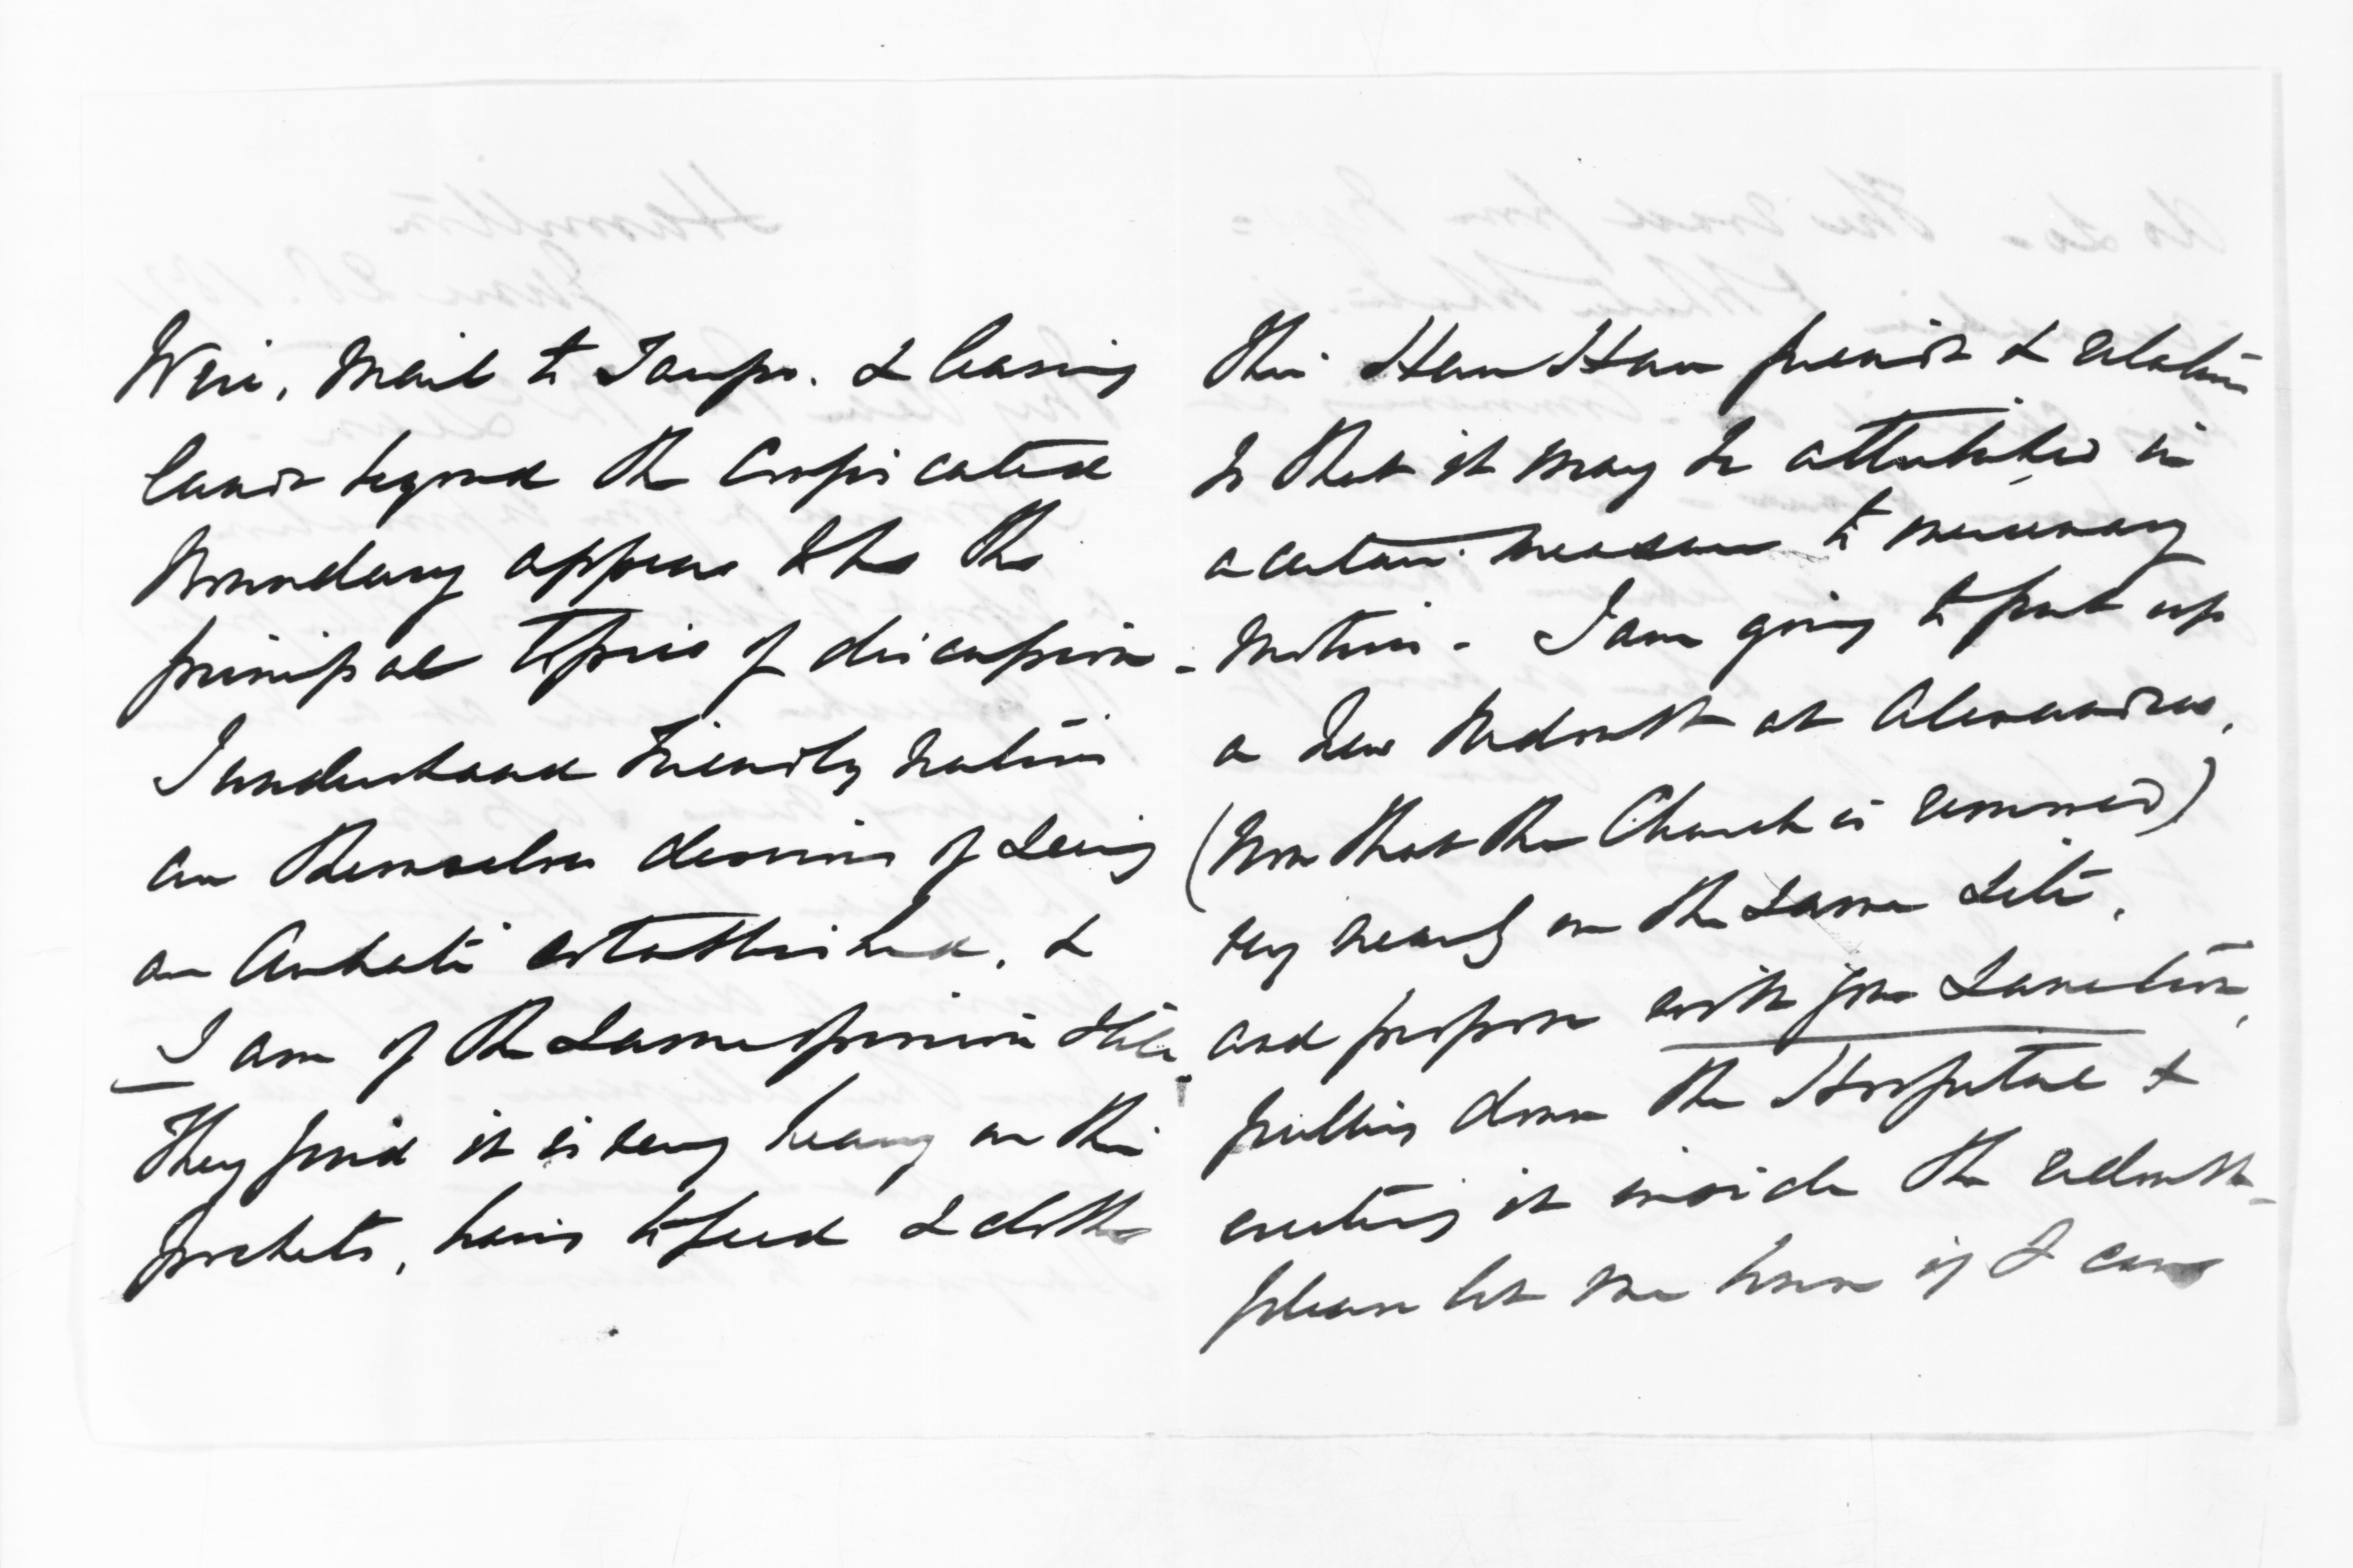 Wire, Mail to Taupo. & leasing
lands beyond the Confiscated
Boundary appear to be the
principal topics of discussion -
I understand Friendly Natives
are themselves desirous of seeing
an Aukati established, &
I am of the same opinion still
They find it is very heavy on their
pockets, having to feed & clothe
their Hau Hau friends & relatives
so that it may be attributed in
a certain measure to mercenary
motives - I am going to put up
a new Redoubt at Alexandra,
(Now that the Church is removed)
very nearly on the same site,
and propose with your sanction,
pulling down the Hospital &
erecting it inside the redoubt -
please let me know if I can